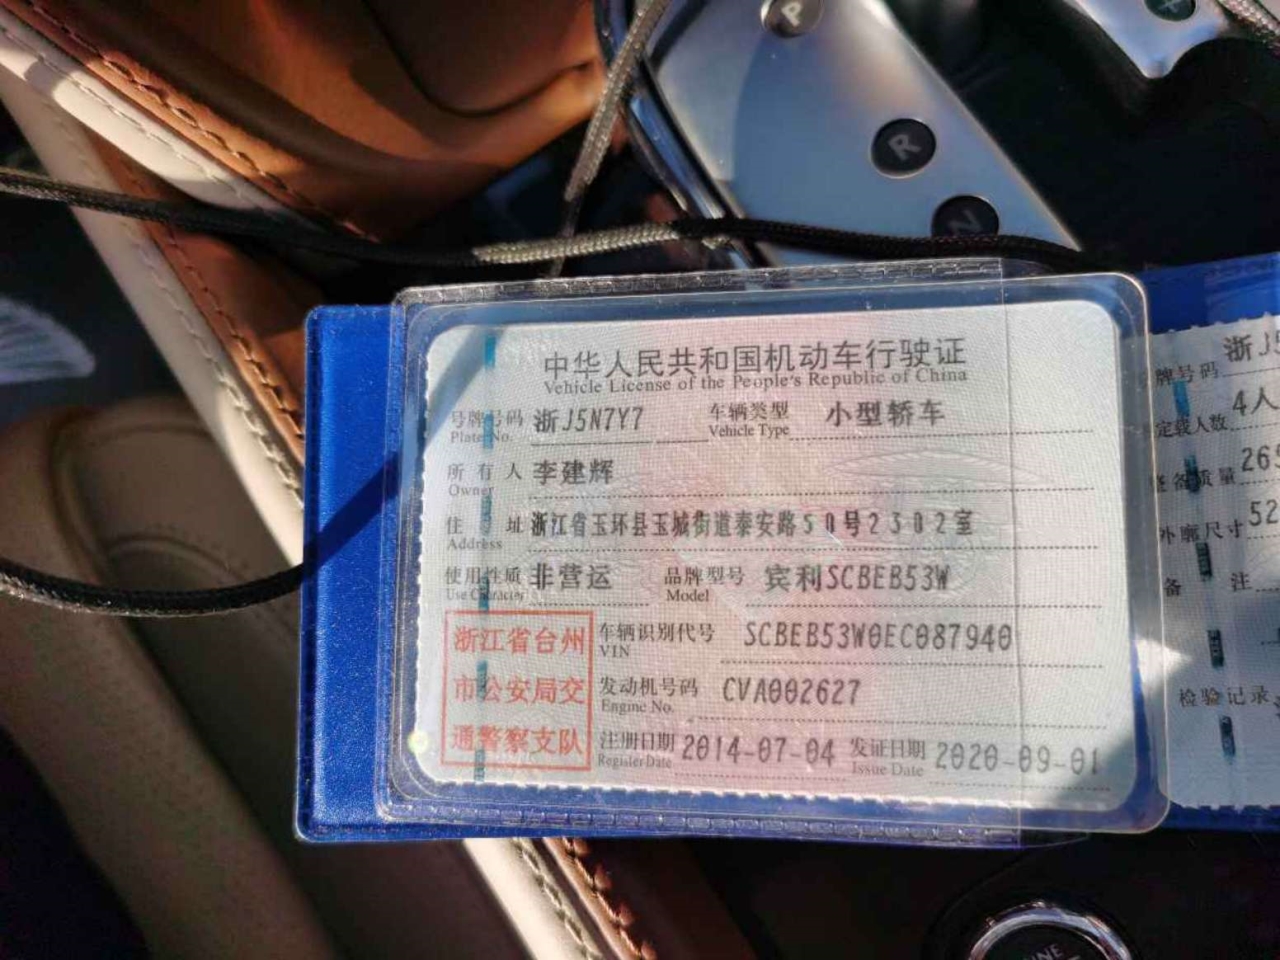 P
R
N
中华人民共和国机动车行驶证
Vehicle License of the People's Republic of China
号牌号码 浙J5N7Y7 车辆类型 小型轿车
Plate No. Vehicle Type
所有人 李建辉
Owner
住址 浙江省玉环县玉城街道泰安路50号2302室
Address
使用性质 非营运 品牌型号 宾利SCBEB53W
Use Character Model
浙江省台州
市公安局交
通警察支队
车辆识别代号 SCBEB53W0EC087940
VIN
发动机号码 CVA002627
Engine No.
注册日期 2014-07-04 发证日期 2020-09-01
Register Date Issue Date
牌号码 浙J5
定载人数 4人
备质量 26
外廓尺寸 52
备注
检验记录